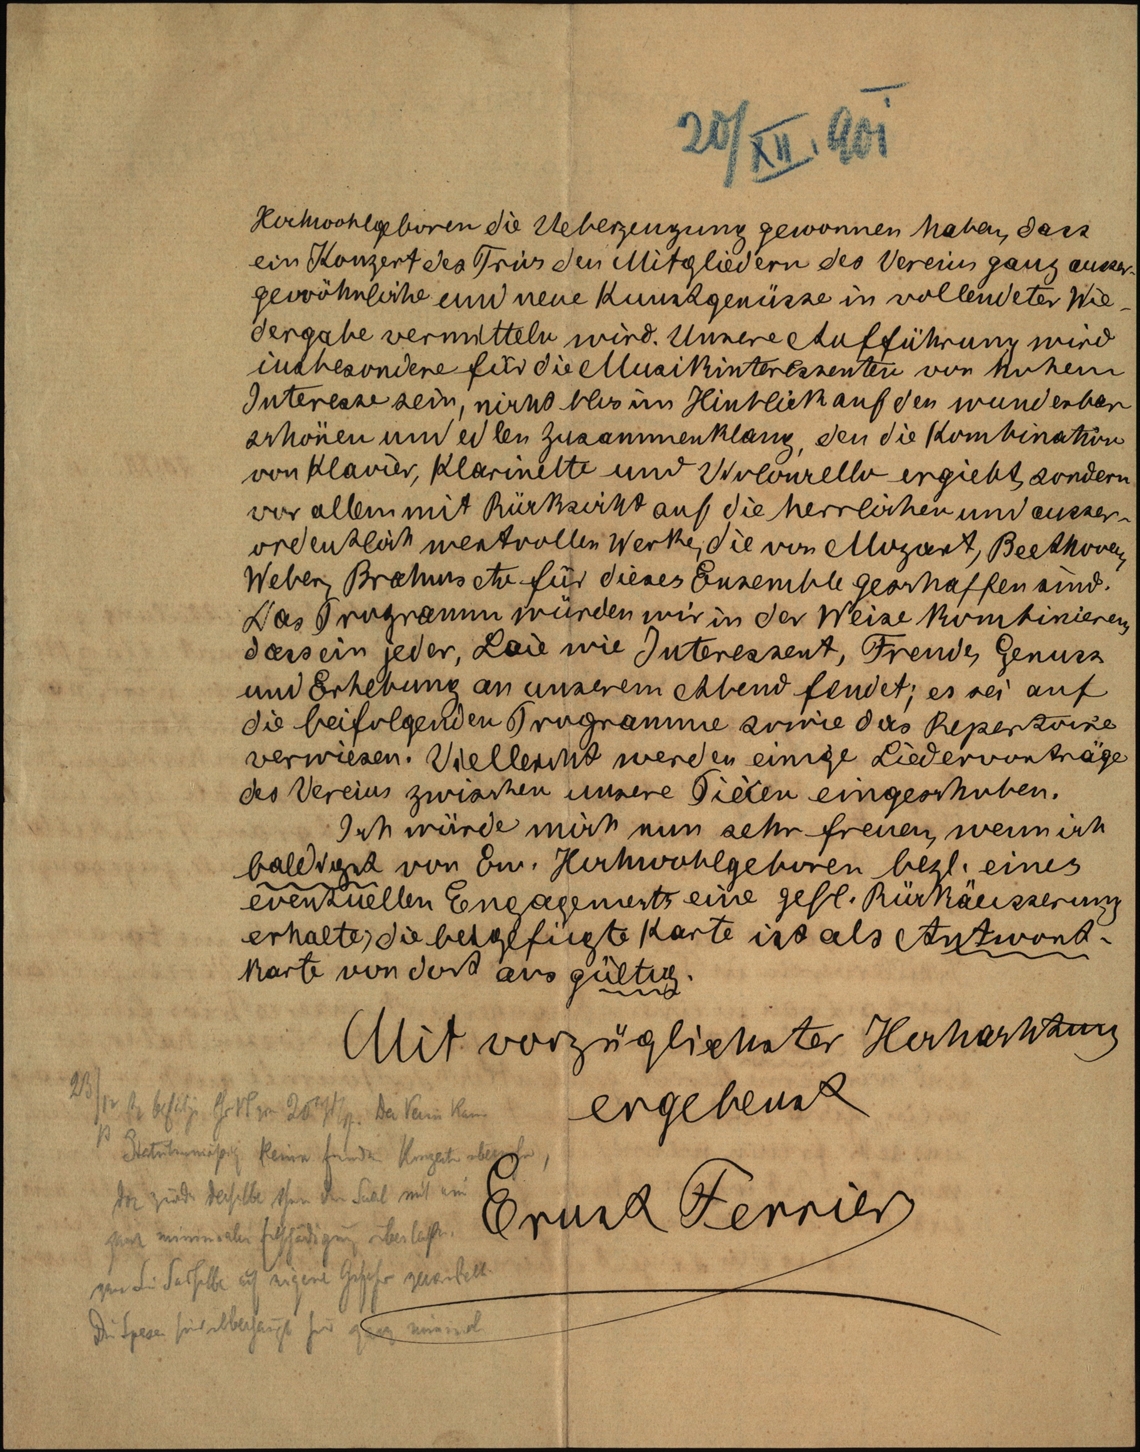 20/XII. 901
Hochwohlgeboren die Ueberzeugung gewonnen haben, dass
ein Konzert des Trios den Mitgliedern des Vereins ganz ausser-
gewöhnliche und neue Kunstgenüsse in vollendeter Wie-
dergabe vermitteln wird. Unsere Aufführung wird
insbesondere für die Musikinteressenten von hohem
Interesse sein, nicht blos im Hinblick auf den wunderbar
schönen und edlen Zusammenklang, den die Kombination
von Klavier, Klarinette und Violoncello ergiebt, sondern
vor allem mit Rücksicht auf die herrlichen und ausser-
ordentlich wertvollen Werke, die von Mozart, Beethoven,
Weber, Brahms etc für dieses Ensemble geschaffen sind.
Das Programm würden wir in der Weise kombinieren,
dass ein jeder, Laie wie Interessent, Freude, Genuss
und Erhebung an unserem Abend findet; es sei auf
die beifolgenden Programme sowie das Repertoire
verwiesen. Vielleicht werden einige Liedervorträge
des Vereins zwischen unsere Piècen eingeschoben.
Ich würde mich nun sehr freuen, wenn ich
baldigst von Ew. Hochwohlgeboren bezl. eines
eventuellen Engagements eine gefl. Rückäusserung
erhalte; die beigefügte Karte ist als Antwort-
karte von dort aus gültig.
Mit vorzüglichster Hochachtung
ergebenst
Ernst Ferrier
23/12 Der Verein kann
Statutenmäßig keine fremden Konzerte
den Saal mit
ganz minimaler Entschädigung überläßt,
auf eigene Gefahr
Die Spesen sind überhaupt ganz minimal